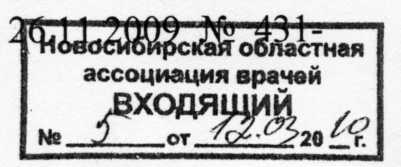 26.11.2009 № 431-
Новосибирская областная
ассоциация врачей
ВХОДЯЩИЙ
№ 5 от 12.03 2010 г.